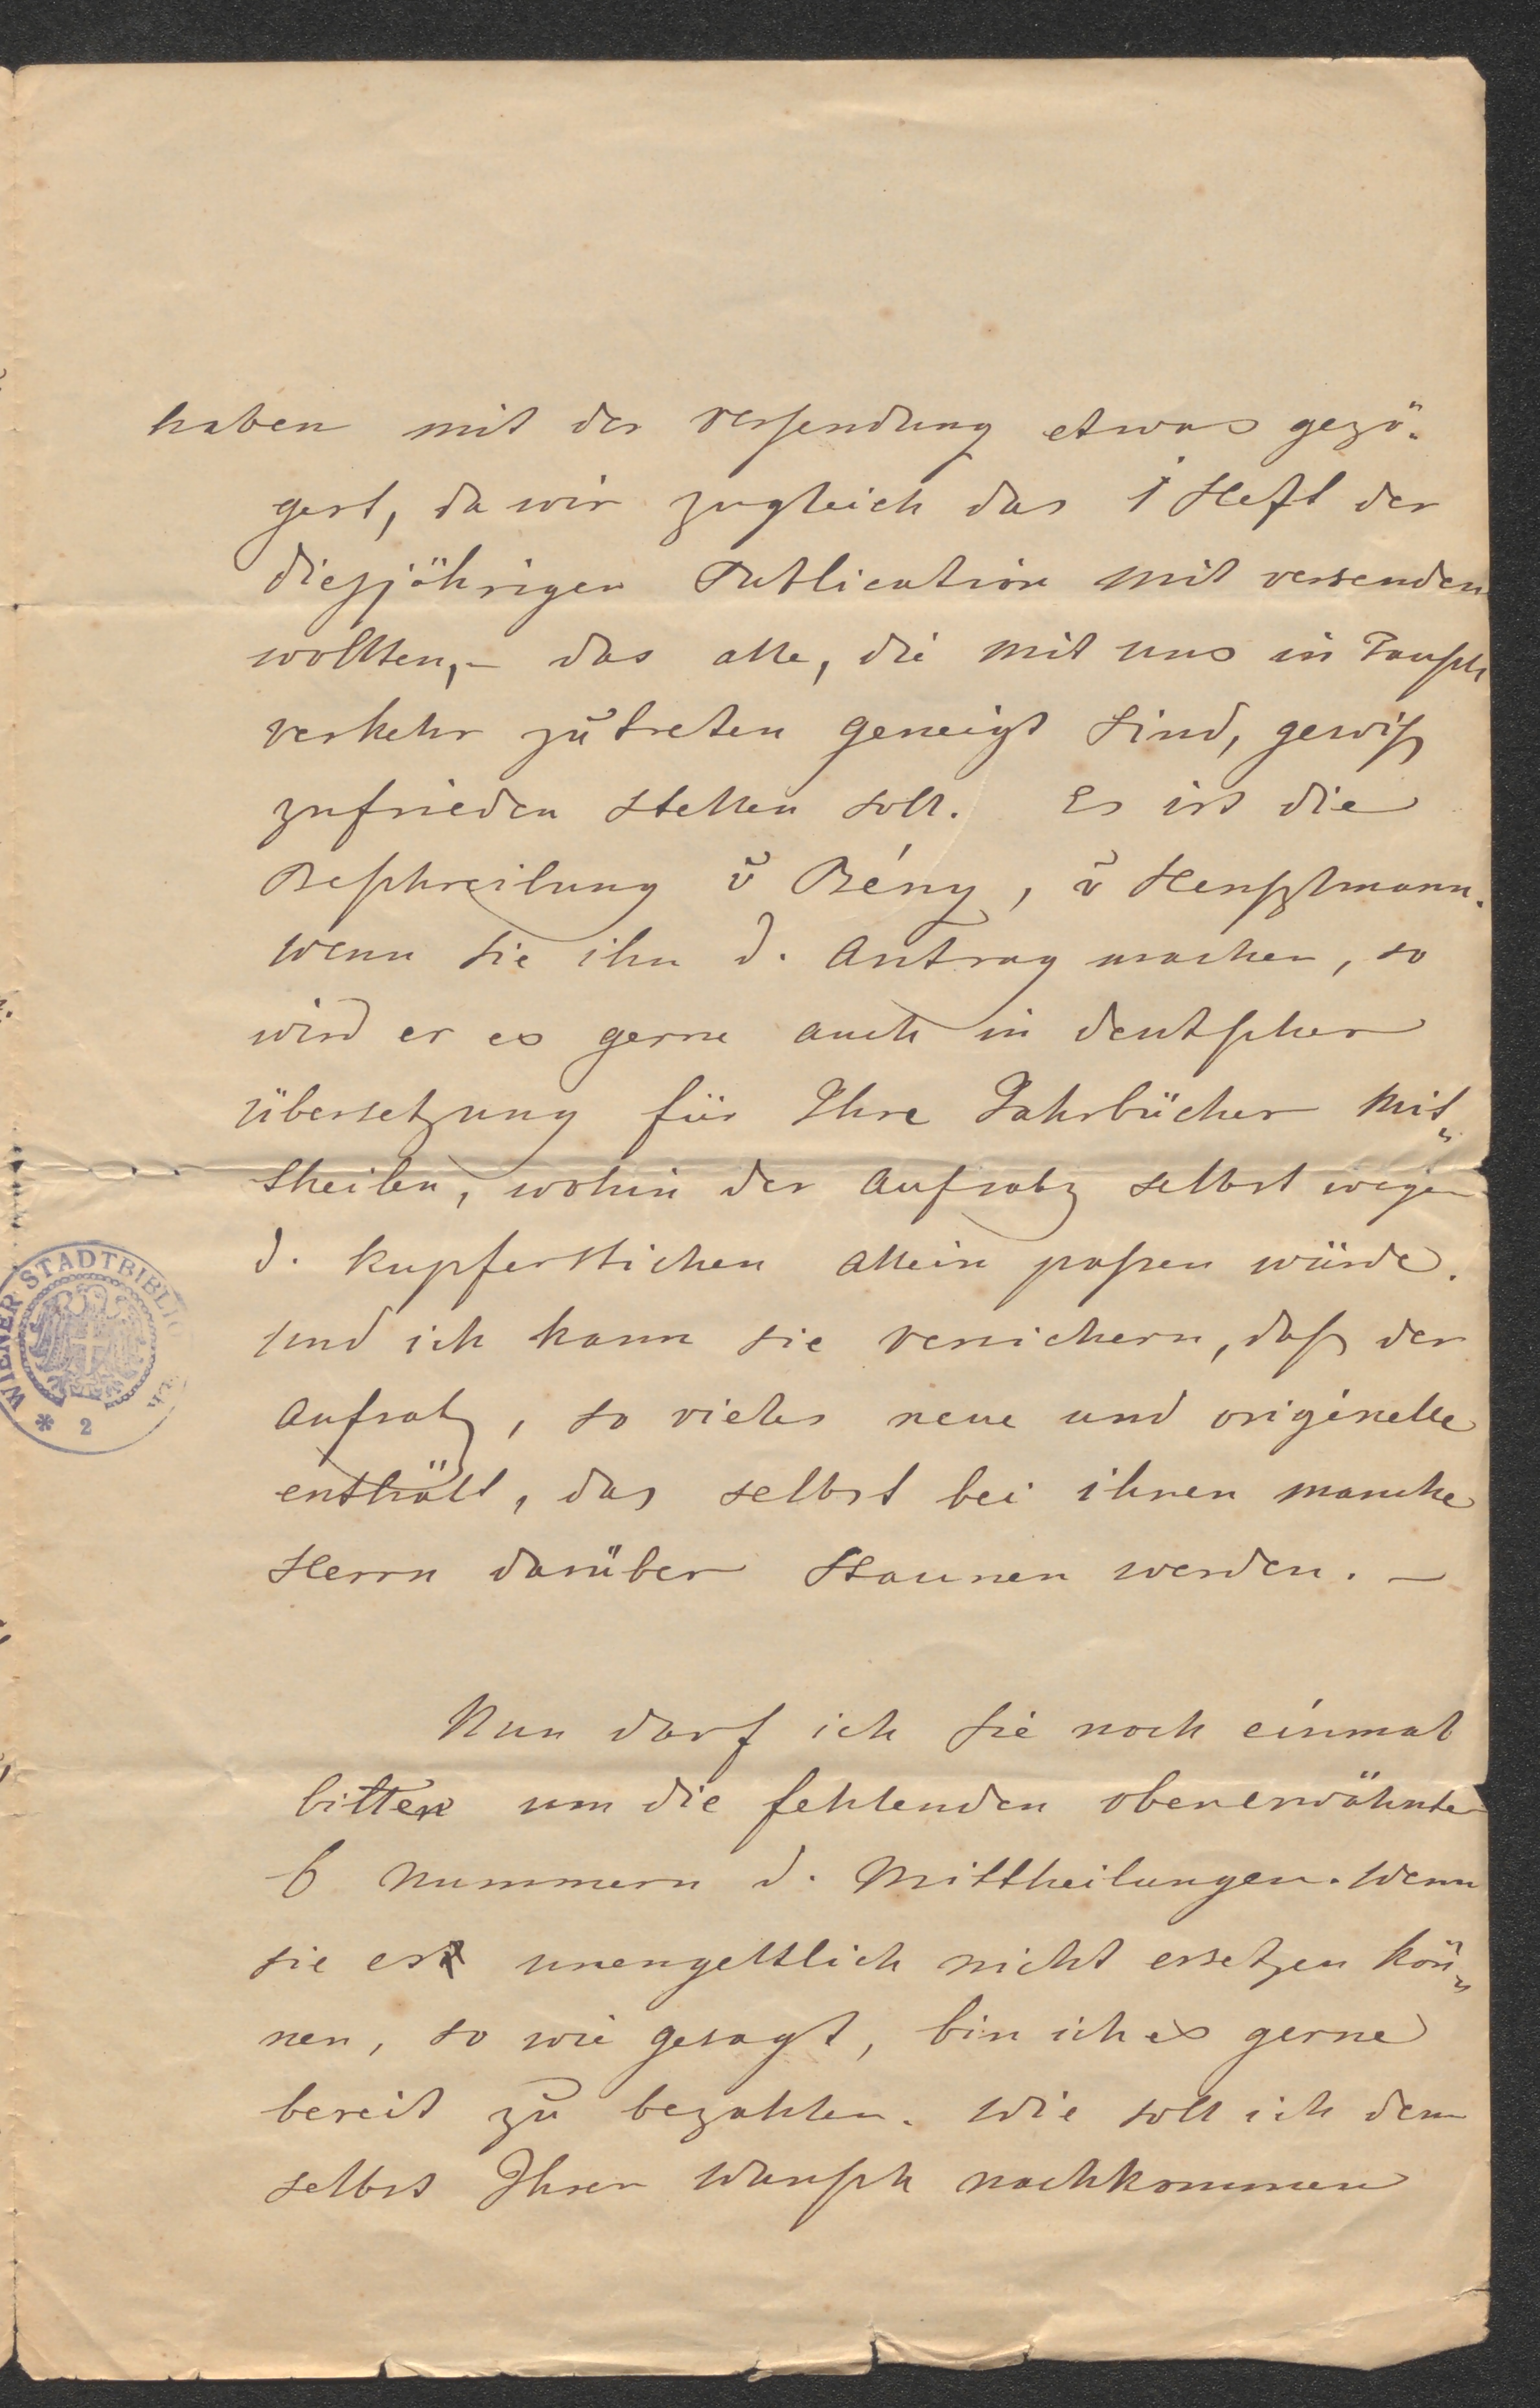 haben mit der Versendung etwas gezö-
gert, da wir zugleich das 1 Heft der
diesjährigen Publication mit versenden
wollten, – das alle, die mit uns in Tausch
verkehr zu treten geneigt sind, gewiß
zufrieden stellen soll. Es ist die
Beschreibung v̄ Bény, v̄ Henszlmann.
Wenn Sie ihn d. Antrag machen, so
wird er es gerne auch in deutscher
Übersetzung für Ihre Jahrbücher mit„
theilen, wohin der Aufsatz selbst wegen
d. Kupferstichen allein paßen würde.
Und ich kann Sie versichern, daß der
Aufsatz, so vieles neue und originelle
enthält, das selbst bei ihnen manche
Herrn darüber staunen werden. –
Nun darf ich Sie noch einmal
bitten um die fehlenden obenerwähnte
6 Nummern d. Mittheilungen. Wenn
sie es unengeltlich nicht ersetzen kön„
nen, so wie gesagt, bin ich es gerne
bereit zu bezahlen. Wie soll ich dem
selbst Ihren Wunsch nachkommen
WIENER STADTBIBLIO
* 2